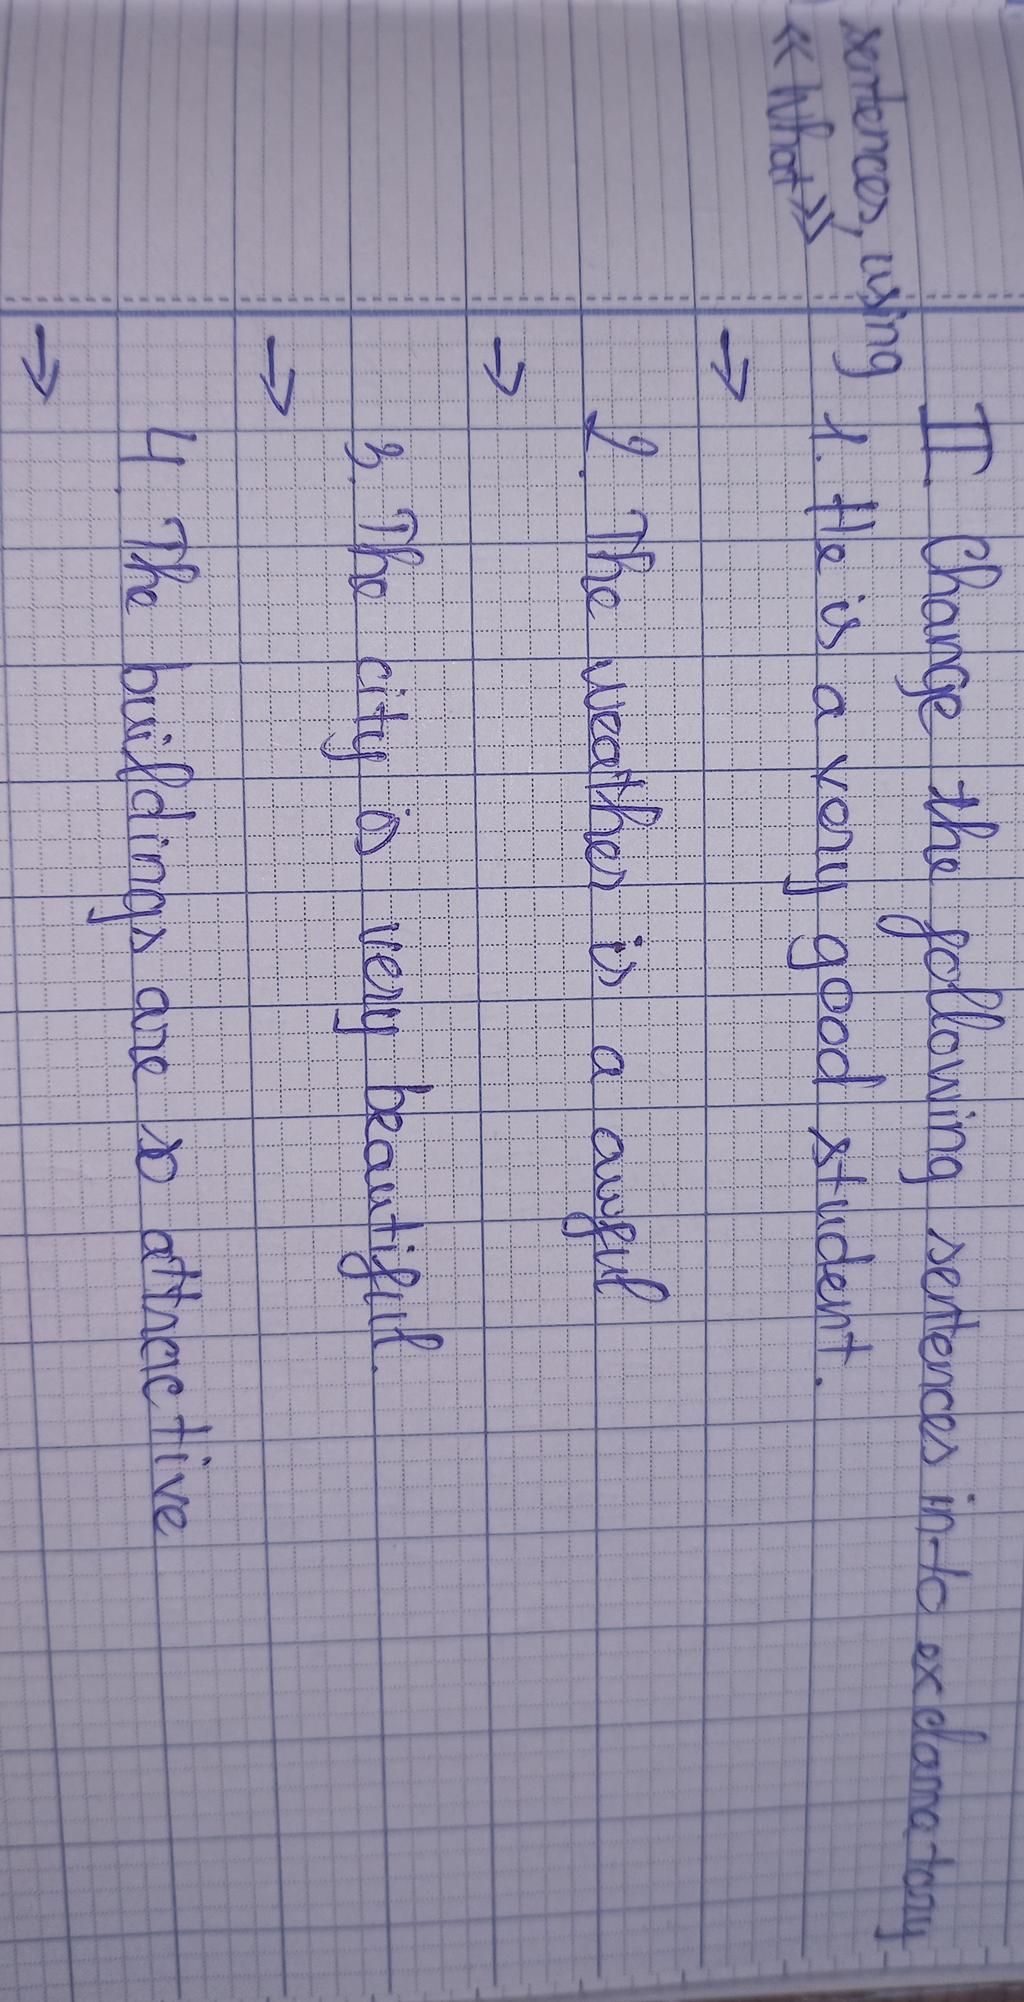 II. Change the following sentences in-to exclamatory
sentences, using
« What »
1. He is a very good student.
→
2. The weather is a awful
→
3. The city is very beautiful.
→
4. The buildings are so attractive
→